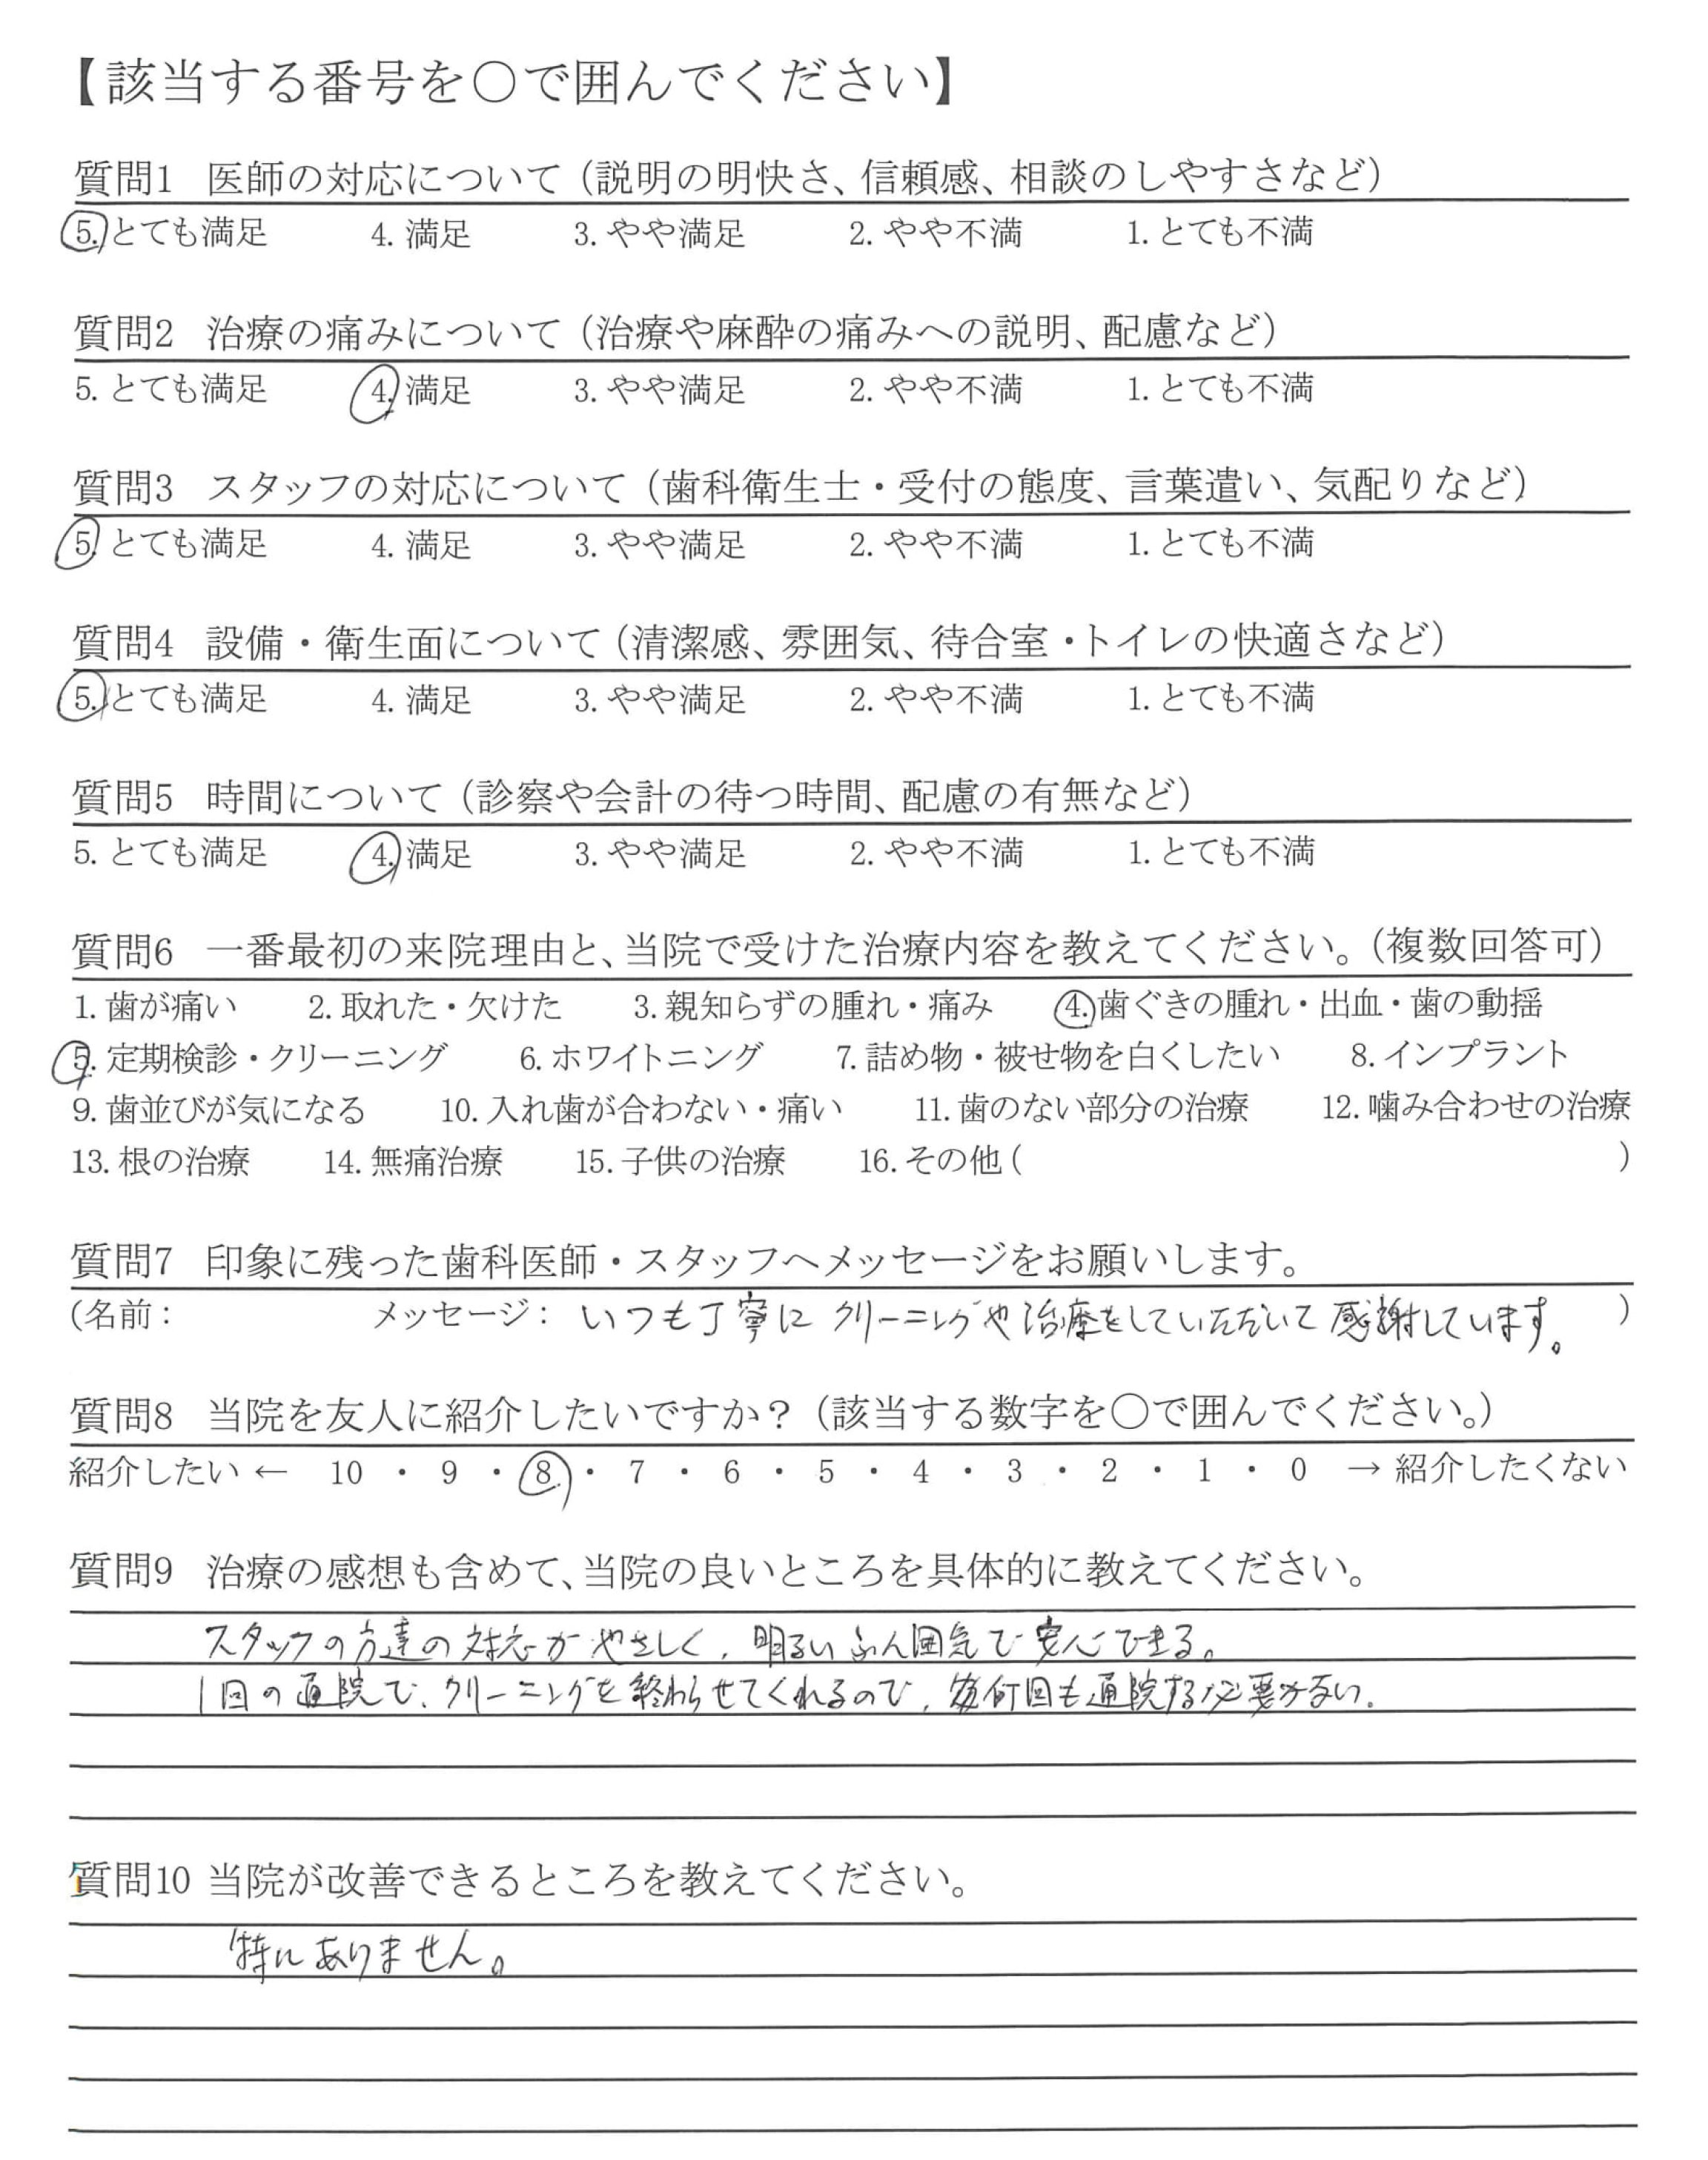 【該当する番号を○で囲んでください】
質問1 医師の対応について（説明の明快さ、信頼感、相談のしやすさなど）
5. とても満足 4. 満足 3. やや満足 2. やや不満 1. とても不満
質問2 治療の痛みについて（治療や麻酔の痛みへの説明、配慮など）
5. とても満足 4. 満足 3. やや満足 2. やや不満 1. とても不満
質問3 スタッフの対応について（歯科衛生士・受付の態度、言葉遣い、気配りなど）
5. とても満足 4. 満足 3. やや満足 2. やや不満 1. とても不満
質問4 設備・衛生面について（清潔感、雰囲気、待合室・トイレの快適さなど）
5. とても満足 4. 満足 3. やや満足 2. やや不満 1. とても不満
質問5 時間について（診察や会計の待つ時間、配慮の有無など）
5. とても満足 4. 満足 3. やや満足 2. やや不満 1. とても不満
質問6 一番最初の来院理由と、当院で受けた治療内容を教えてください。（複数回答可）
1. 歯が痛い 2. 取れた・欠けた 3. 親知らずの腫れ・痛み 4. 歯ぐきの腫れ・出血・歯の動揺
5. 定期検診・クリーニング 6. ホワイトニング 7. 詰め物・被せ物を白くしたい 8. インプラント
9. 歯並びが気になる 10. 入れ歯が合わない・痛い 11. 歯のない部分の治療 12. 噛み合わせの治療
13. 根の治療 14. 無痛治療 15. 子供の治療 16. その他（ ）
質問7 印象に残った歯科医師・スタッフへメッセージをお願いします。
（名前： メッセージ： いつも丁寧にクリーニングや治療をしていただいて感謝しています。 ）
質問8 当院を友人に紹介したいですか？（該当する数字を○で囲んでください。）
紹介したい ← 10 ・ 9 ・ 8 ・ 7 ・ 6 ・ 5 ・ 4 ・ 3 ・ 2 ・ 1 ・ 0 → 紹介したくない
質問9 治療の感想も含めて、当院の良いところを具体的に教えてください。
スタッフの方達の対応がやさしく、明るいふん囲気で安心できる。
1回の通院で、クリーニングを終わらせてくれるので、何回も通院する必要がない。
質問10 当院が改善できるところを教えてください。
特にありません。